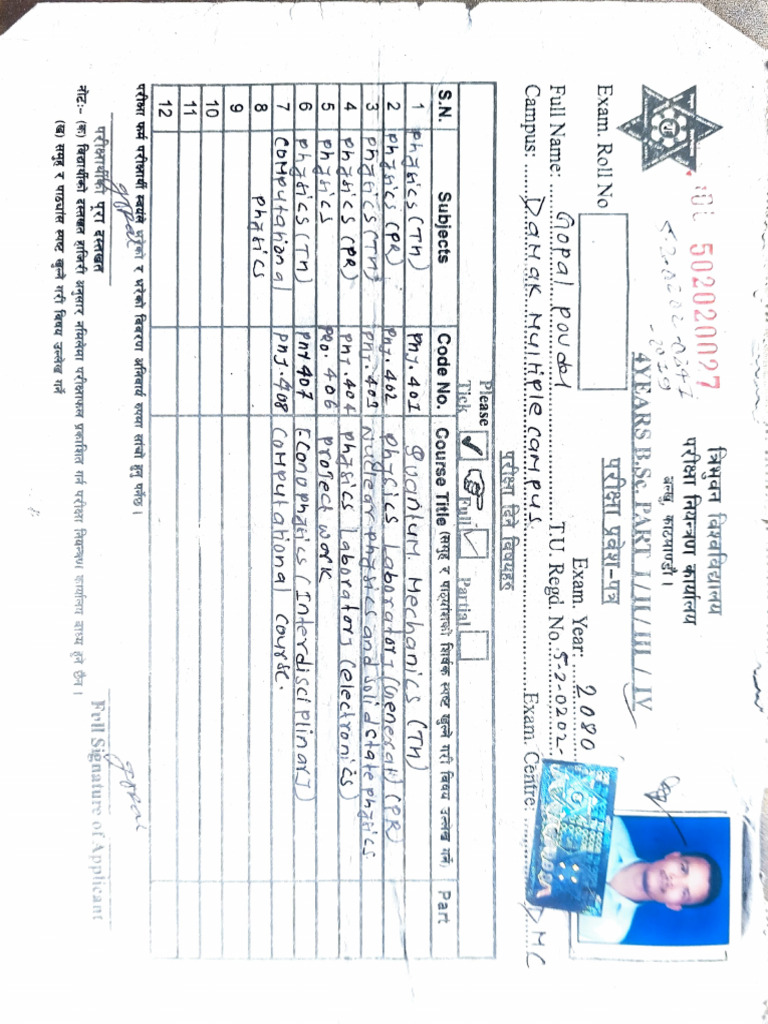 त्रिभुवन विश्वविद्यालय
परीक्षा नियन्त्रण कार्यालय
बल्खु, काठमाण्डौ ।
502020027
4YEARS B.Sc. PART I/II/III/IV
परीक्षा प्रवेश-पत्र
Exam. Roll No
Exam. Year: 2080
Full Name: Gopal poudel T.U. Regd. No. 5-2-0202-
Campus: Damak Multiple campus. Exam. Centre: DMC
परीक्षा दिने विषयहरु
Please Tick ✓ Full ✓ Partial
S.N. Subjects Code No. Course Title (समूह र पाठ्यांशको शिर्षक स्पष्ट खुल्ने गरी बिषय उल्लेख गर्ने) Part
1 Physics (TH) Phy. 401 Quantum Mechanics (TH)
2 Physics (PR) Phy. 402 Physics Laboratory (General) (PR)
3 Physics (TH) Phy. 403 Nuclear physics and solid state physics
4 Physics (PR) Phy. 404 physics laboratory (electronics)
5 physics PRO. 406 project work
6 physics (TH) PHY 407 Econophysics (Interdisciplinary)
7 Computational Phy. 408 Computational Course.
8 physics
9
10
11
12
परीक्षा फर्म परीक्षार्थी स्वयंले भरेको र भरेको बिबरण अनिबार्य रुपमा सांचो हुनु पर्नेछ ।
gopal
परीक्षार्थीको पूरा दस्तखत
gopal
Full Signature of Applicant
नोट:- (क) बिद्यार्थीको दस्तखत हाजिरी अनुसार नमिलेमा परीक्षाफल प्रकाशित गर्न परीक्षा नियन्त्रण कार्यालय बाध्य हुने छैन ।
(ख) समूह र पाठ्यांस स्पष्ट खुल्ने गरी बिषय उल्लेख गर्ने